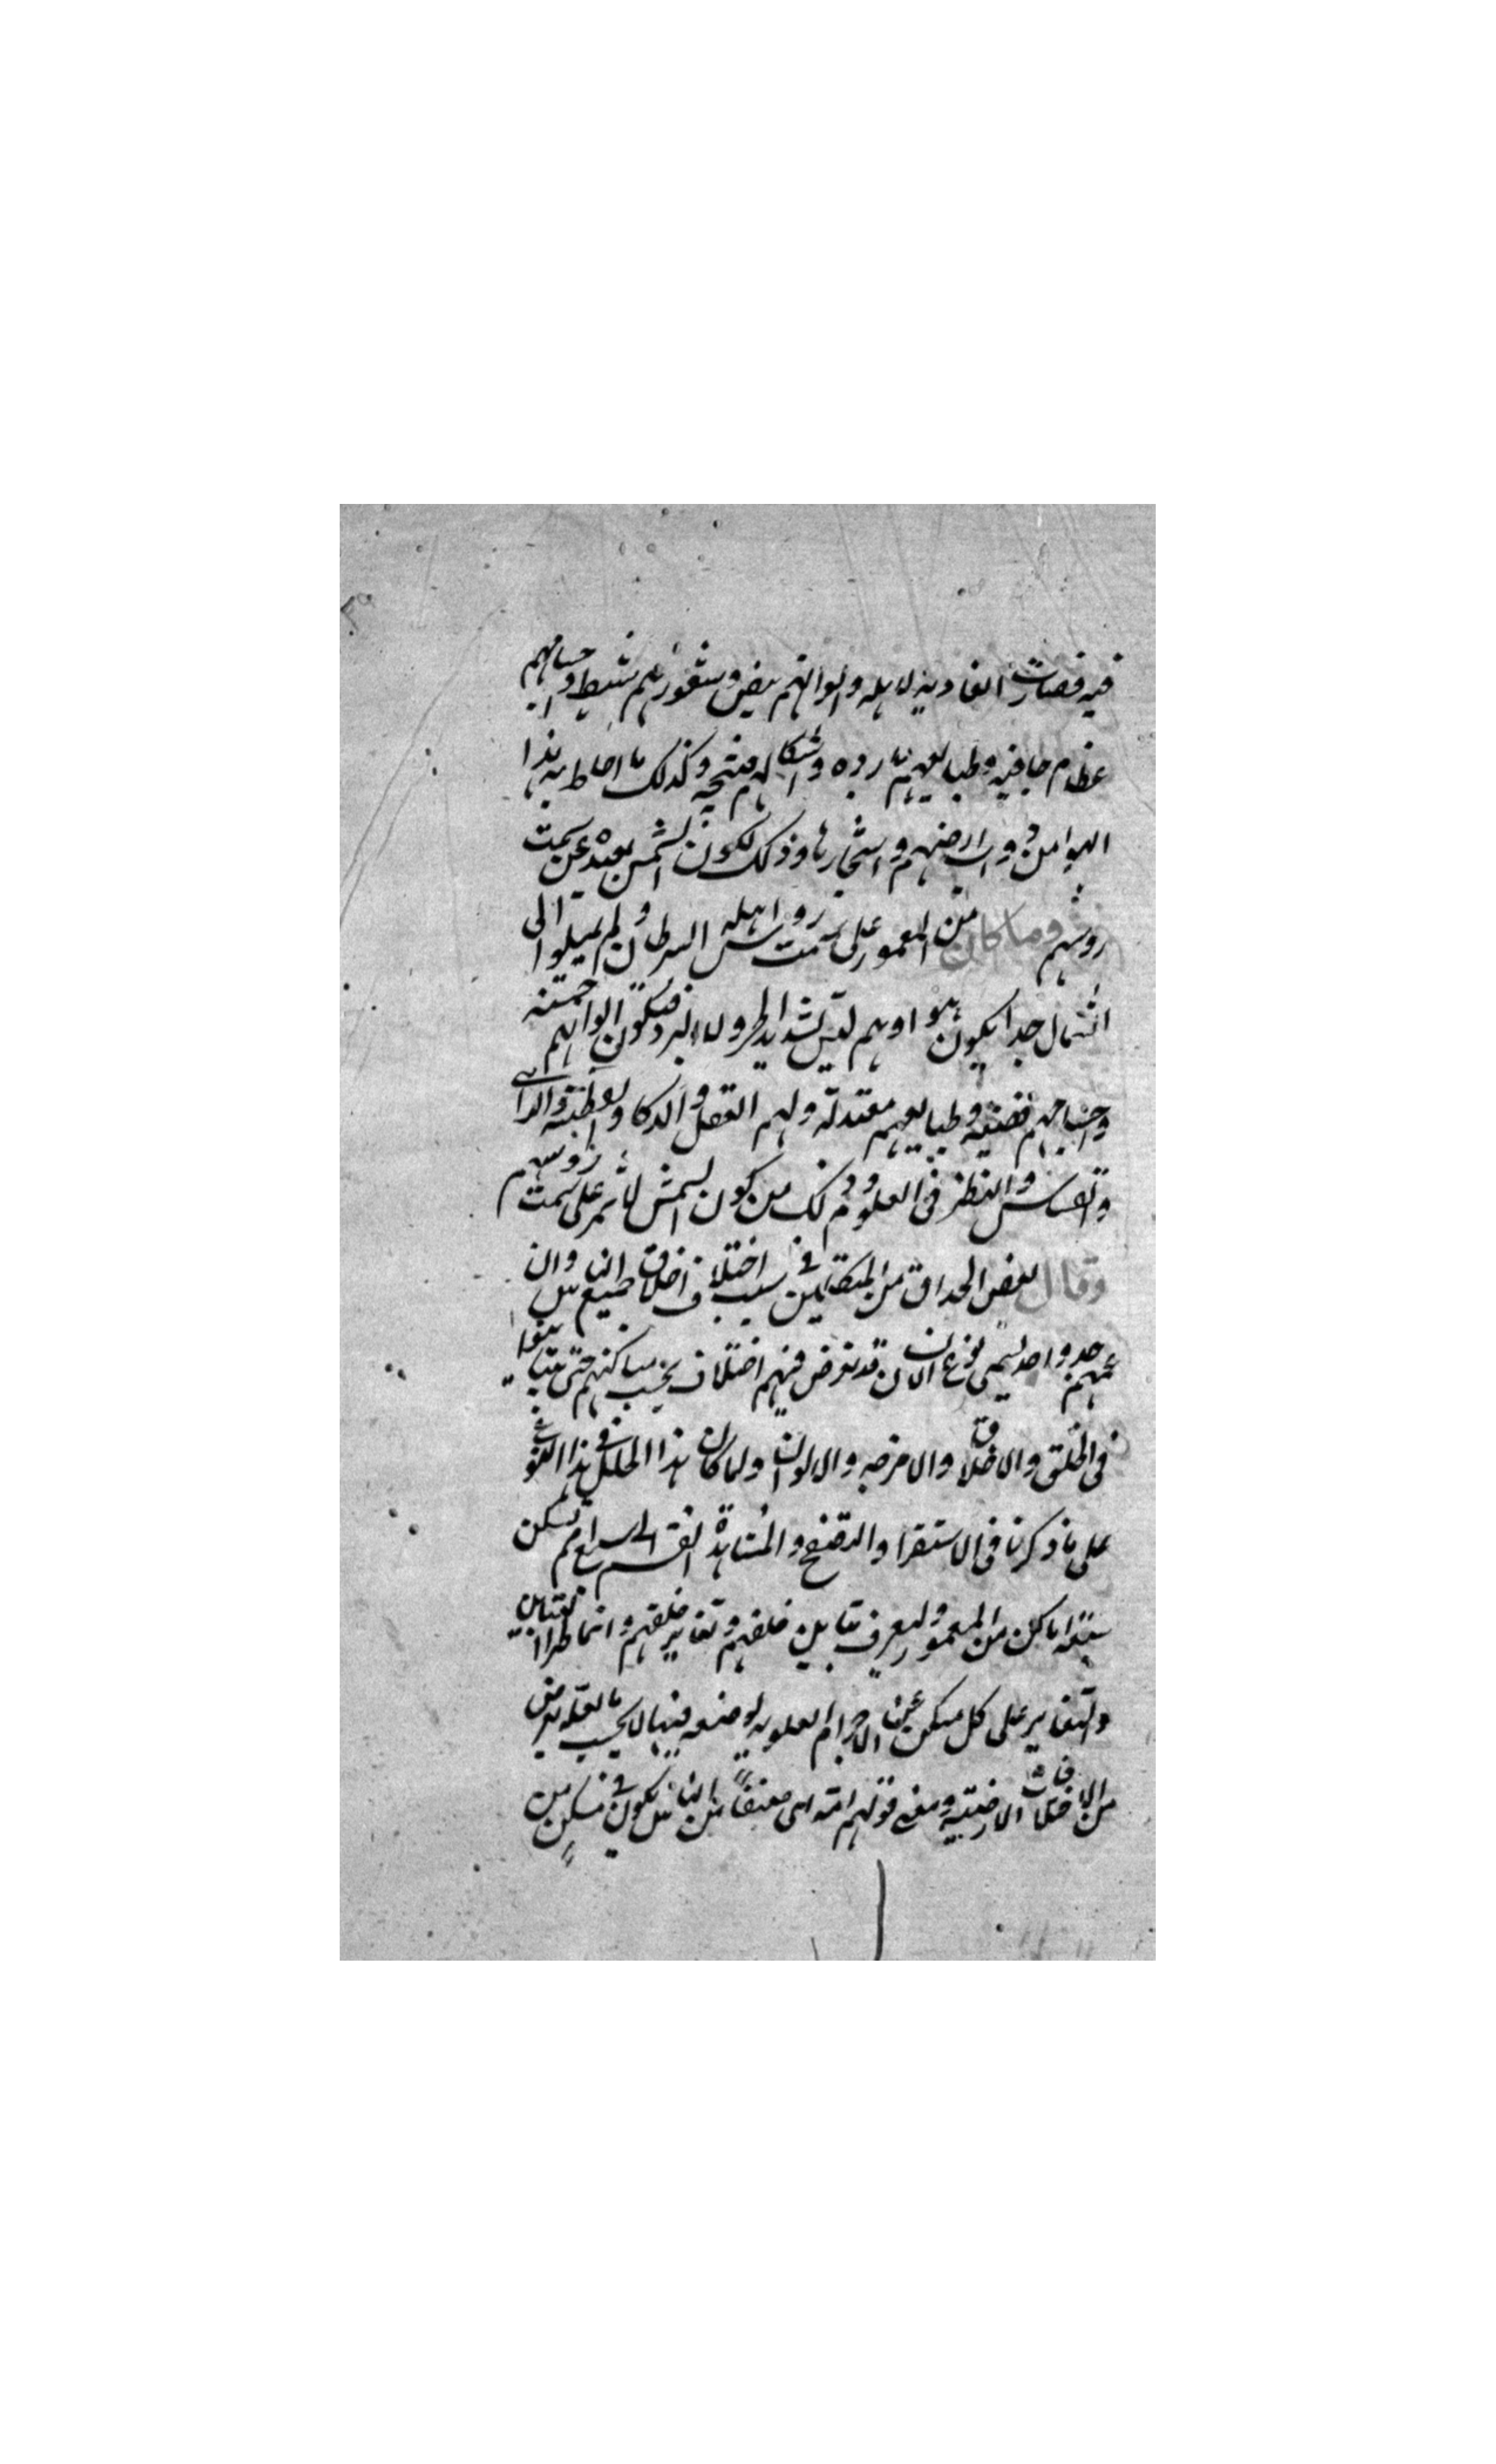 فيه فصارت العادية لاهله والوانهم بيض وشعورهم شبط واجسامهم
عظام جافيه وطبايعهم بارده واشكالهم منتجه وكذلك ما احاط به هذا
الهوا من دواب ارضهم واشجارها وذلك لكون الشمس بعيده عن سمت
روسهم وما كان من المعمور على سمت روس اهله السرطان ولم يميلوا الى
الشمال جدا يكون هواوهم ليس شديد الحر ولا البرد فتكون الوانهم حسنه
واجسامهم وطبايعهم معتدله ولهم العقل والذكا والفطنه والراى
والقياس والنظر فى العلوم وذلك من كون الشمس لا تمر على سمت روسهم
وقال بعض الحذاق من المتكلمين فى سبب اختلاف اخلاق الناس وان جميع
عمهم حد واحد ليسمى نوع الانسان قد تعرض فيهم اختلاف بحسب مساكنهم حتى يتباينوا
فى الخلق والاخلاق والامزجه والالوان ولما كان هذا الخلل فى هذا النوع
على ما ذكرنا فى الاستقرا والتصفح والمشاهدة انقسم الى سبع امم تسكن
سبعة اماكن من المعمور وليعرف تباين خلقهم وتغاير خلقهم وانما طرا التباين
والتغاير على كل مسكن عن الاجرام العلويه لوضعه فيها لا بحسب ما لعله يعرض
من الاختلافات الارضيه ومعنى قولهم امة اى صنفاً من الناس يكون فى مسكن من